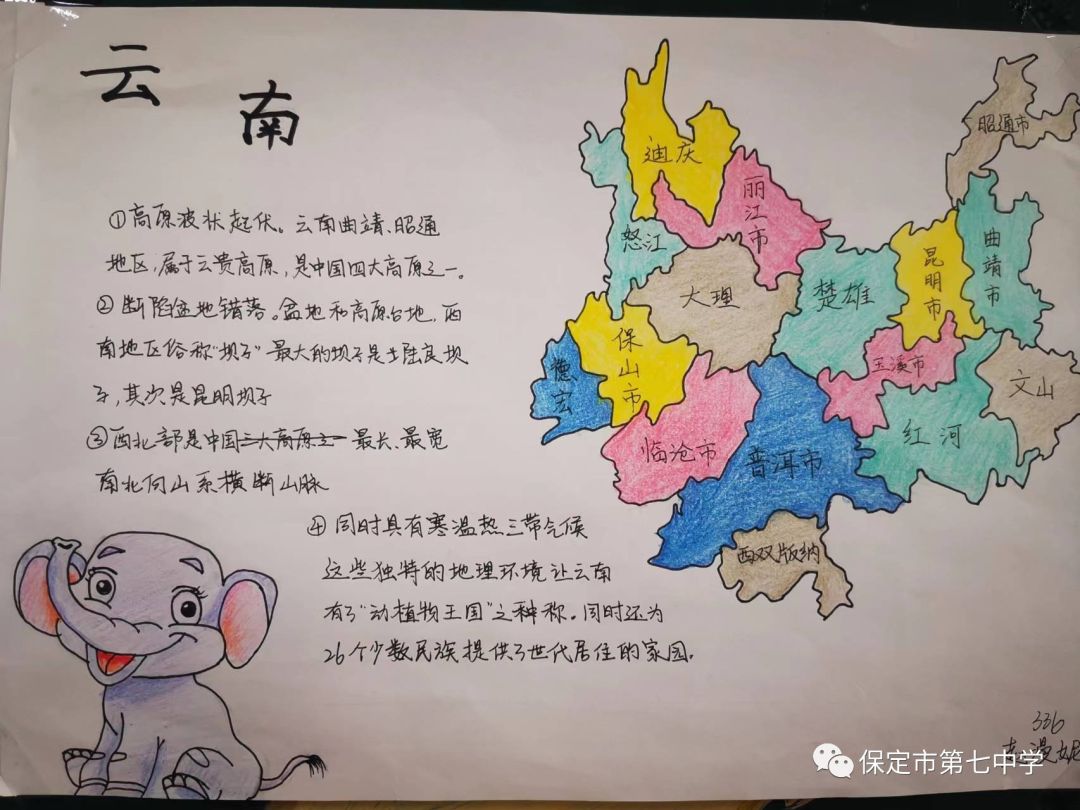 云
南
①高原波状起伏。云南曲靖、昭通
地区,属于云贵高原,是中国四大高原之一。
②断陷盆地错落。盆地和高原台地,西
南地区俗称"坝子"最大的坝子是陆良坝
子,其次是昆明坝子
③西北部是中国三大高原之一最长、最宽
南北向山系横断山脉
④同时具有寒温热三带气候
这些独特的地理环境让云南
有了"动植物王国"之种称。同时还为
26个少数民族提供了世代居住的家园.
昭通市
迪庆
丽江市
怒江
曲靖市
昆明市
大理
楚雄
保山市
德宏
玉溪市
文山
临沧市
普洱市
红河
西双版纳
336
漫妮
保定市第七中学